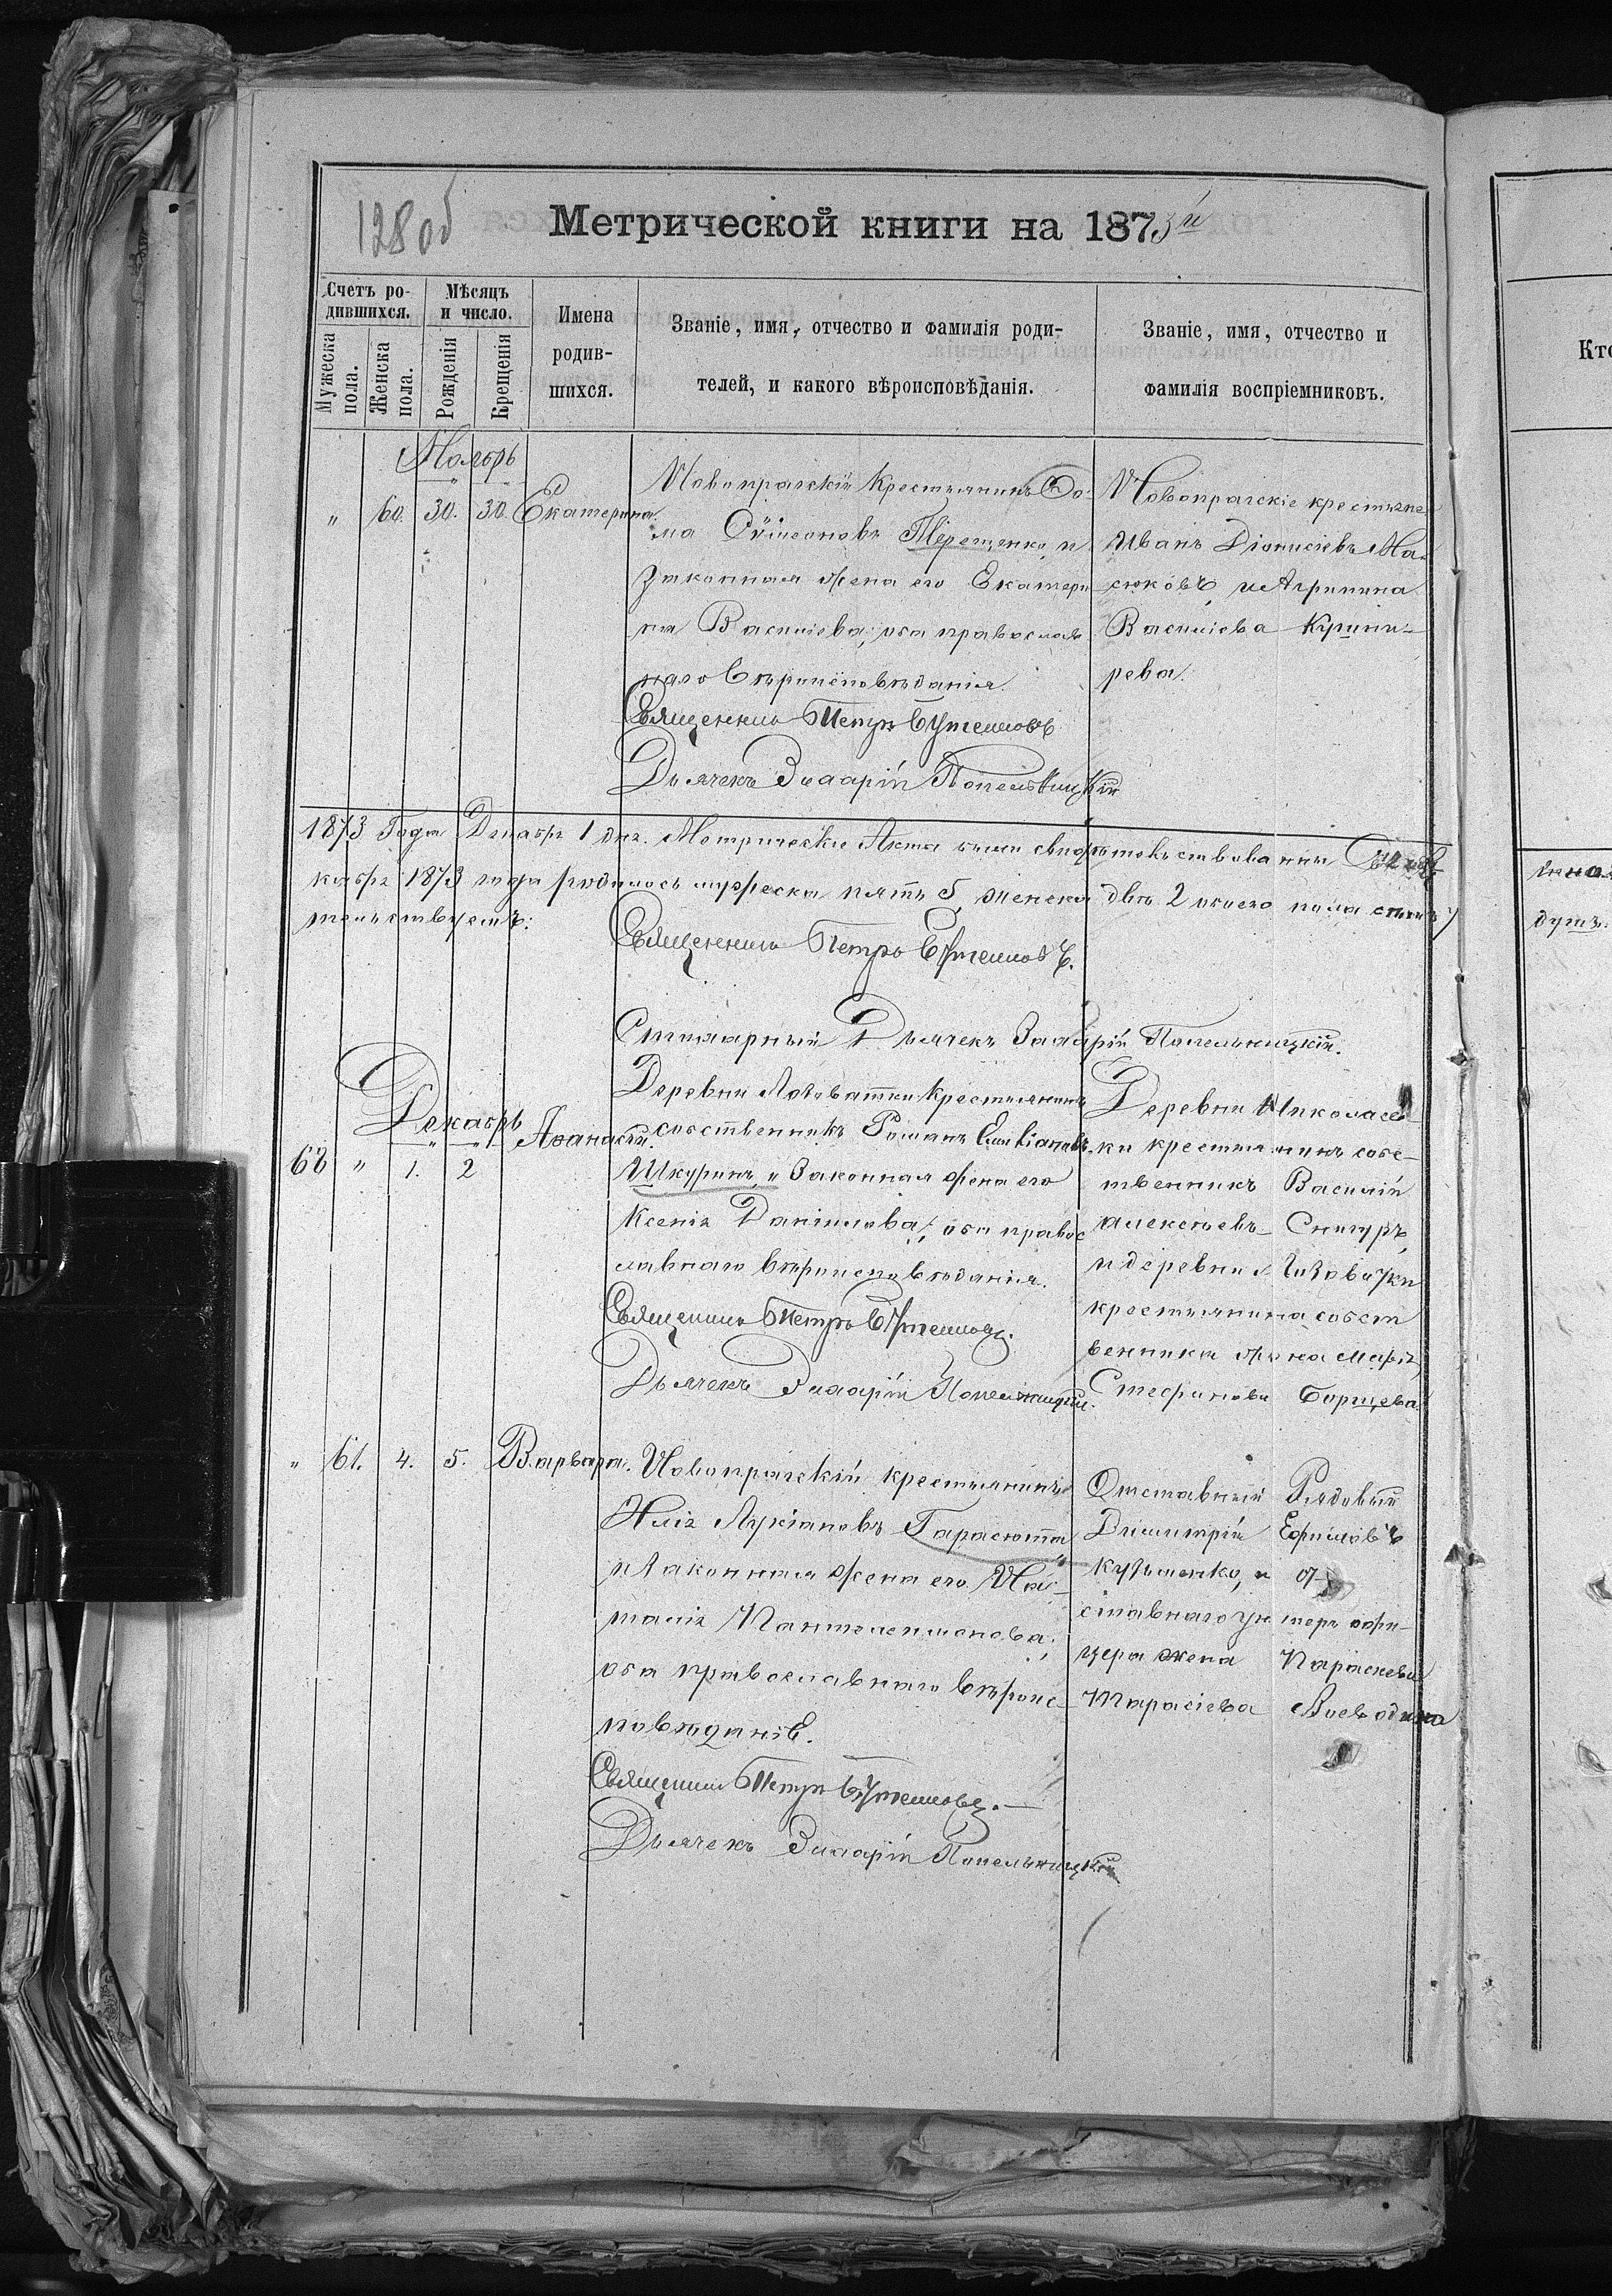 128 об
Метрической книги на 1873й
Счетъ ро-
дившихся.
Мужеска пола.
Женска пола.
Мѣсяцъ
и число.
Рожденія
Крещенія
Имена
родив-
шихся.
Званіе, имя, отчество и фамилія роди-
телей, и какого вѣроисповѣданія.
Званіе, имя, отчество и
фамилія воспріемниковъ.
Кто
Ноябрь
" 60. 30. 30. Екатерина
Новопрагскій крестьянинъ Ѳо-
ма Сѷмеоновъ Терещенко, и
законная жена его Екатери
на Василіева; оба православ
наго вѣроисповѣданія.
Священникъ Петръ
Дьячекъ Иларій Попельницкій
Новопрагскіе крестьяне
Иванъ Діонисіевъ Ма-
сюковъ, и Агрипина
Василіева
рева.
1873 Года Декабря 1 дня. Метрическіе Акта были свидѣтельствованы
кабря 1873 года родилось мужеска пять 5, женска двѣ 2 обоего пола
тельствуемъ:
Священникъ Петръ
Дьячекъ Иларій Попельницкій.
Декабрь
60 " 1. 2 Аѳанасій.
Деревни крестьянинъ
собственникъ Романъ Емиліановъ
Шкуринъ, и Законная жена его
Ксенія Даніилова; оба правос
лавнаго вѣроисповѣданія.
Священникъ Петръ
Дьячекъ Иларій Попельницкій.
Деревни Николаев-
ки крестьянинъ собс-
твенникъ Василій
Алексѣевъ Снигуръ,
и деревни
крестьянина собст
венника жена Марія
Стефанова Борщева.
" 61. 4. 5. Варвара.
Новопрагскій крестьянинъ
Илія Лукіановъ Гарасюта
и Законная жена его На-
талія Пантелеимонова;
оба православнаго вѣроис-
повѣданія.
Священникъ Петръ
Дьячекъ Иларій Попельницкій
Отставный Рядовый
Димитрій Ефимовъ
Кузьменко, и от-
ставнаго ун теръ офи-
цера жена Параскева
Тарасіева Воеводина
душъ.